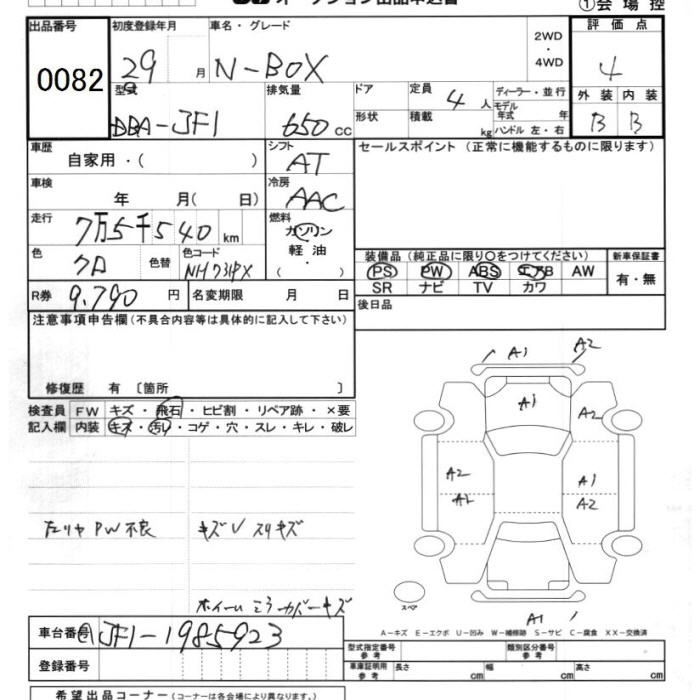 ①会場控
出品番号
0082
初度登録年月
29 月
車名・グレード
N-BOX
2WD
・
4WD
評価点
4
型式
DBA-JF1
排気量
650 cc
ドア
形状
定員
4 人
積載
kg
ディーラー・並行
モデル
年式 年
ハンドル 左・右
外装 内装
B B
車歴
自家用・( )
シフト
AT
セールスポイント (正常に機能するものに限ります)
車検
年 月( 日)
冷房
AAC
走行
7万5千540 km
燃料
ガソリン
軽油
( ・ )
色
クロ
色替
色コード
NH731PX
装備品 (純正品に限り○をつけてください)
PS PW ABS エアB AW
SR ナビ TV カワ
新車保証書
有・無
R券
9,790 円
名変期限 月 日
後日品
注意事項申告欄 (不具合内容等は具体的に記入して下さい)
修復歴 有 〔箇所 〕
検査員 FW キズ・飛石・ヒビ割・リペア跡・×要
記入欄 内装 キズ・汚れ・コゲ・穴・スレ・キレ・破レ
A1 A2
A1
A2
A2 A1
A2 A2
左リヤ PW 不良 キズ V スリキズ
A1
スペア
A-キズ E-エクボ U-凹み W-補修跡 S-サビ C-腐食 XX-交換済
車台番号 JF1-1985923
登録番号
型式指定番号
参考
類別区分番号
参考
車庫証明用
参考
長さ cm 幅 cm 高さ cm
希望出品コーナー (コーナーは各会場により異なります。)